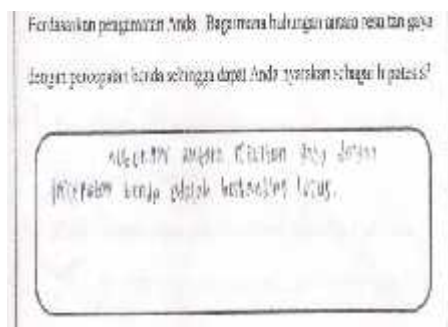 Berdasarkan pengamatan Anda. Bagaimana hubungan antara resultan gaya
dengan percepatan benda sehingga dapat Anda nyatakan sebagai hipotesis?
antara resultan gaya dengan
percepatan benda adalah berbanding lurus.